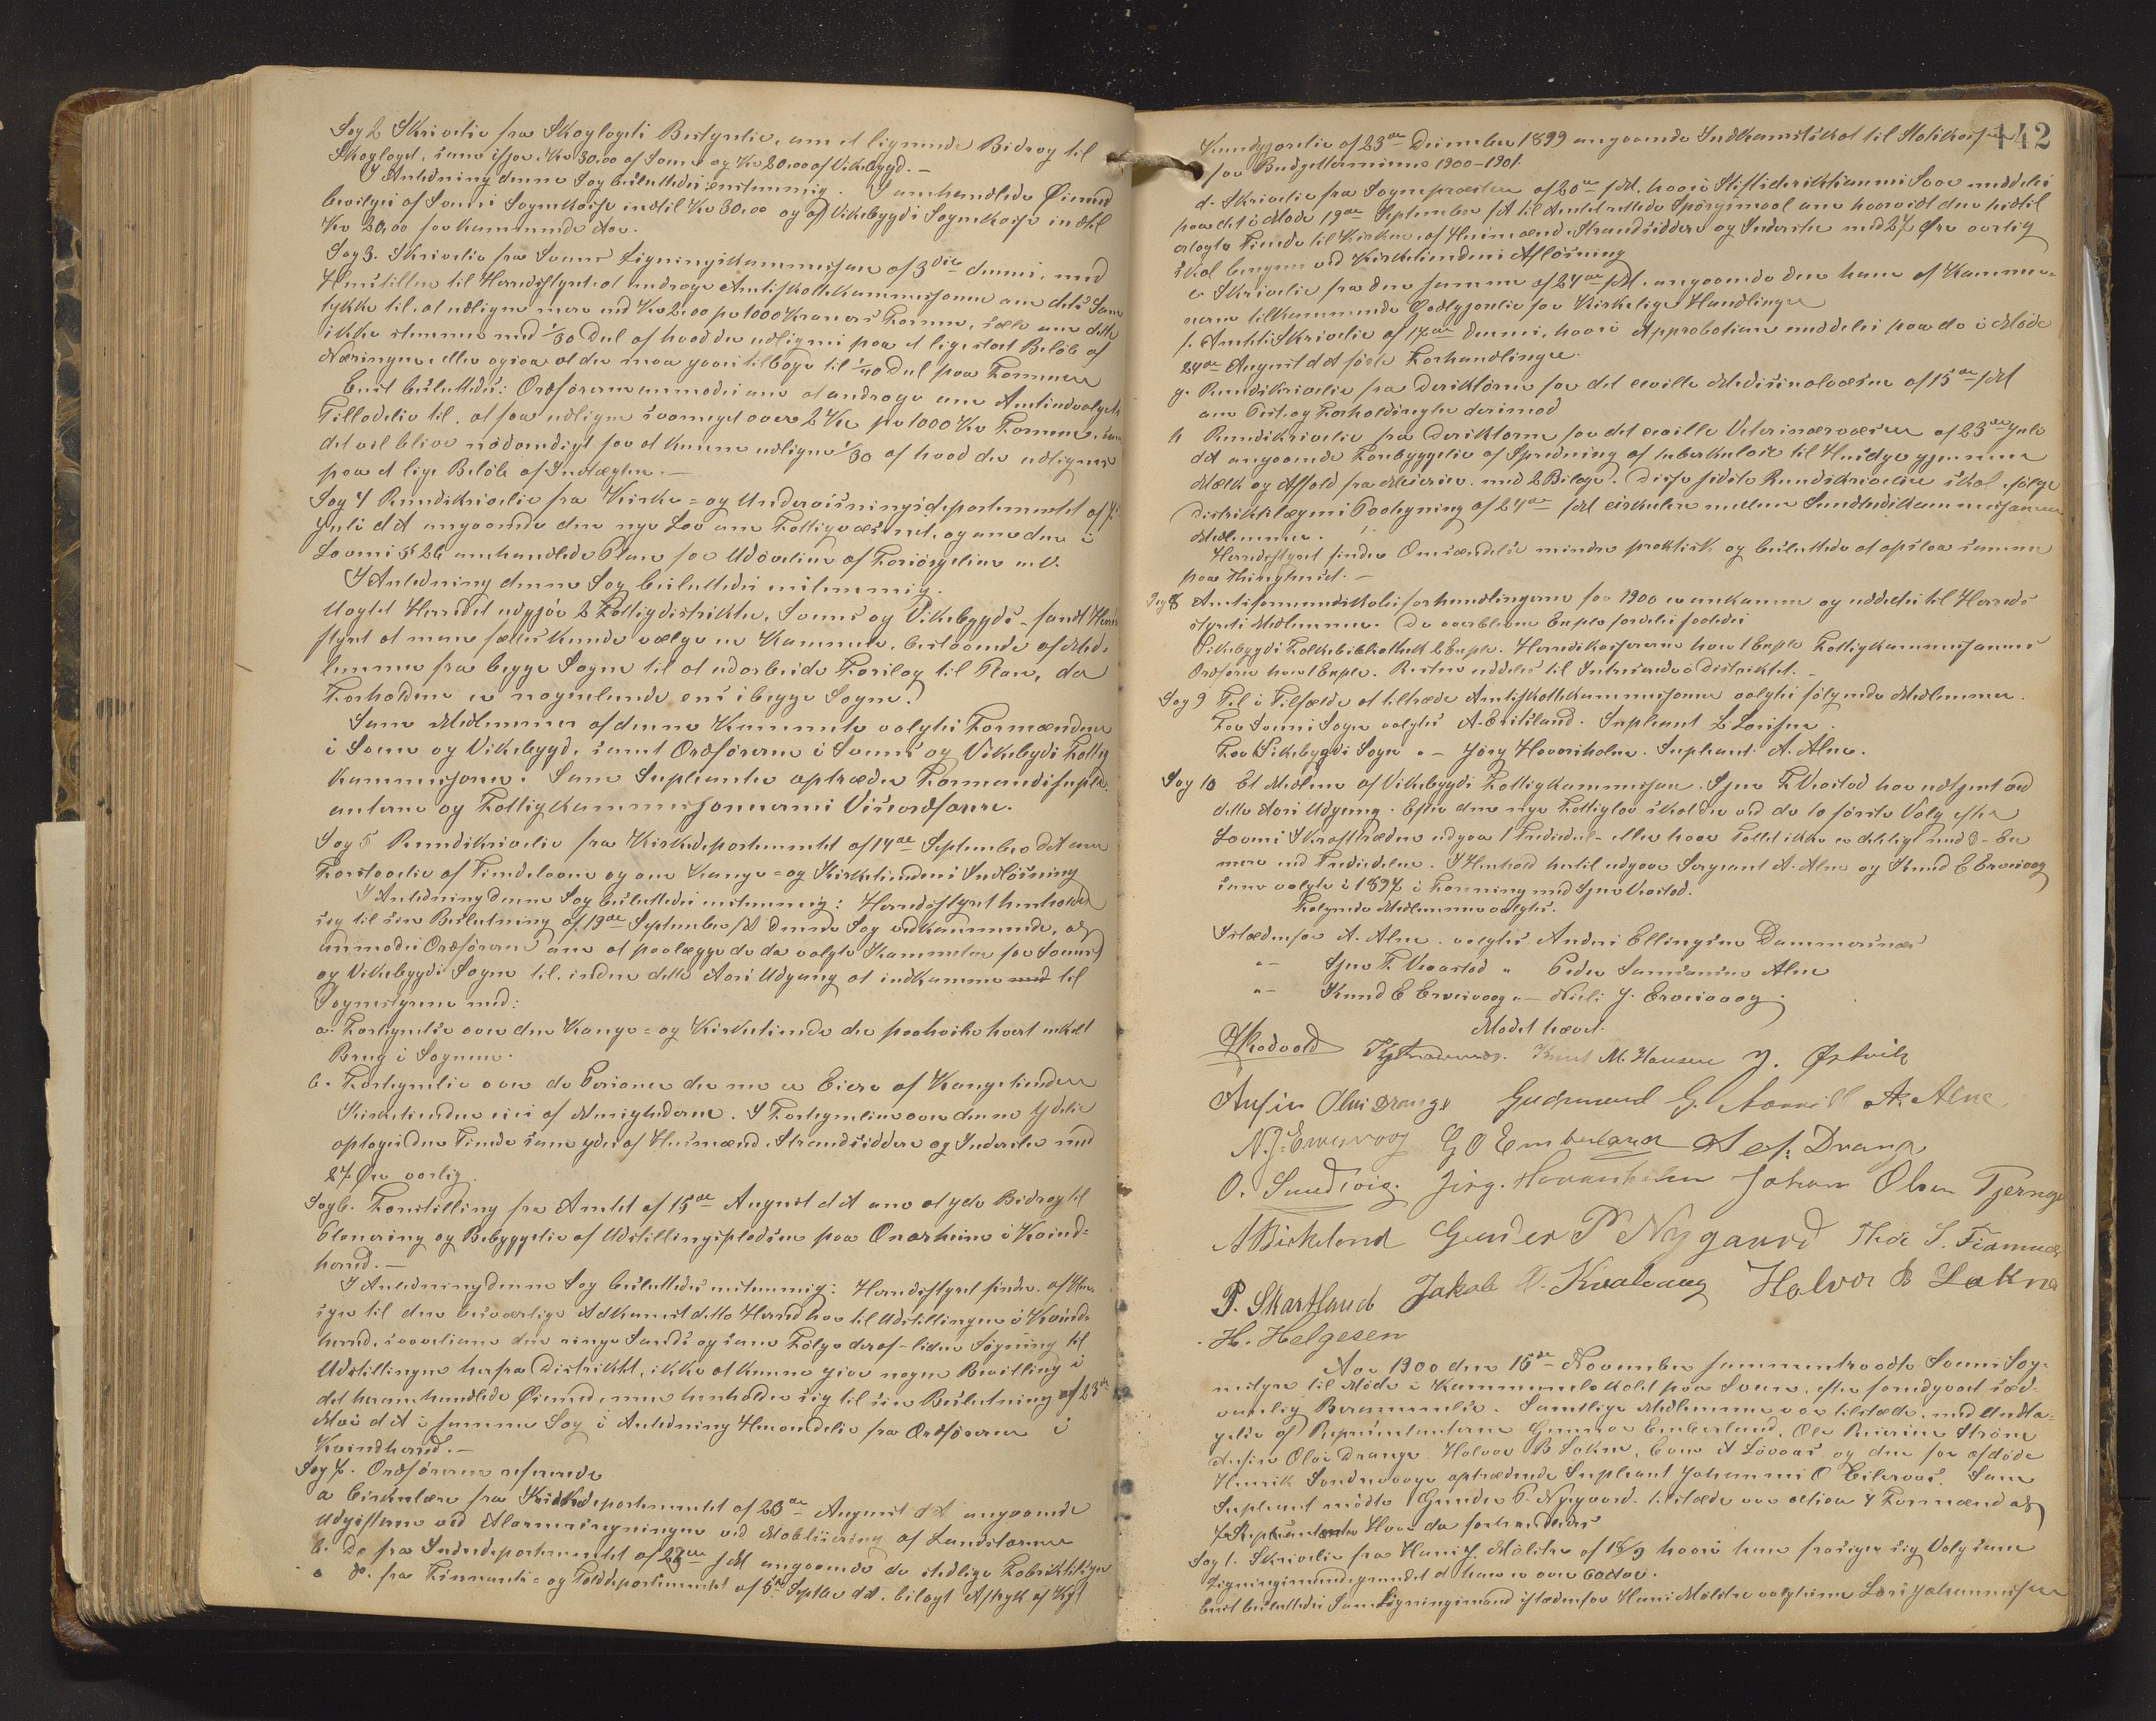 Sag 2 Skrivelse fra Skoglagets Bestyrelse, om et lignende Bidrag til
Skoglaget, som ifjor, Kr 30.00 af Sveen og Kr 20.00 af Vikebygd. –
I Anledning denne Sag besluttedes enstemmig: I omhandlede Øiemed
bevilges af Sveens Sognekasse indtil Kr 30.00 og af Vikebygds Sognekasse indtil
Kr 20.00 for kommende Aar.
Sag 3. Skrivelse fra Sveens Ligningskommission af 3die dennes, med
Henstillen til Herredsstyret at andrage Amtsskattekommissionen om dets Sam
tykke til, at udligne mere end Kr 2.00 pr 1000 Kroners Formue, selv om dette
ikke stemmer med 1/30 Del af hvad der udlignes paa et ligestort Beløb af
Næringen eller ogsaa at der maa gaaes tilbage til 1/40 Del paa Formuen
Enst besluttedes: Ordføreren anmodes om at andrage om Amtsudvalgets
Tilladelse til, at faa udligne saameget over 2 Kr pr 1000 Kr Formue, som
det vil blive nødvendigt for at kunne udligne 1/30 af hvad der udlignes
paa et lige Beløb af Indtægten. –
Sag 4 Rundskrivelse fra Kirke- og Undervisningsdepartementet af
Juli d A angaaende den nye Lov om Fattigvæsenet, og om den i
Lovens § 26 omhandlede Plan for Udøvelsen af Forsørgelsen m.V.
I Anledning denne Sag besluttedes enstemmig.
Uagtet Herredet udgjør 2 Fattigdistrikter, Sveens og Vikebygds – fandt Herreds
styret at man fælles kunde vælge en Kommite, bestaaende af Med-
lemmer fra begge Sogne til at udarbeide Forslag til Plan, da
Forholdene er nogenlunde ens i begge Sogne.
Som Medlemmer af denne Kommite valgtes Formændene
i Sveen og Vikebygd, samt Ordførerne i Sveens og Vikebygds Fattig
kommissioner. Som Suplianter optræder Formandssupli-
anterne og Fattigkommissionernes Viseordførere.
Sag 5 Rundskrivelse fra Kirkedepartementet af 14de September d A om
Forstaaelse af Tiendeloven og om Konge- og Kirketiendens Indløsning
I Anledning denne Sag besluttedes enstemmig: Herredsstyret henholder
sig til sin Beslutning af 19de September f A denne Sag vedkommende, og
anmodes Ordføreren om at paalægge de da valgte Kommiteer for Sveens
og Vikebygds Sogne til inden dette Aars Udgang at indkomme med til
Sognestyrene med:
a. Fortegnelse over den Konge- og Kirketiende der paahviler hvert enkelt
Brug i Sognene.
b. Fortegnelse over de Personer der nu er Eiere af Kongetienden
Kirketienden eies af Menighederne. I Fortegnelsen over denne Ydelse
optages den Tiende som ydes af Husmænd, Strandsiddere og Inderster med
27 Øre aarlig.
Sag 6. Forestilling fra Amtet af 15de August d A om at yde Bidrag til
Planering og Bebyggelse af Udstillingspladsen paa Onarheim i Kvind-
herred. –
I Anledning denne Sag besluttedes enstemmig: Herredsstyret finder, af Hen
syn til den besværlige Adkomst dette Herred har til Udstillingen i Kvind-
herred, saavelsom den ringe Sands og som Følge deraf – liden Søgning til
Udstillingen herfra Distriktet, ikke at kunne give nogen Bevilling i
det heromhandlede Øiemed, men henholder sig til sin Beslutning af 23de
Mai d A i samme Sag i Anledning Henvendelse fra Ordføreren i
Kvindherred. –
Sag 7. Ordføreren refererede
a Cirkulære fra Kirkedepartementet af 23de August d A angaaende
Udgifterne ved Alarmeringningen ved Mobilisering af Landstormen
b. Do fra Indredepartementet af 28de f M angaaende de stedlige Fabriktilsyn
c do. fra Finants- og Tolddepartementet af 5te Septbr d A. bilagt Aftryk af Kgl

142
Kundgjørelse af 23de December 1899 angaaende Indkomstskat til Statskassen
for Budgetterminen 1900–1901.
d. Skrivelse fra Sognepræsten af 20de f M. hvori Stiftsdirektionens Svar meddeles
paa det i Møde 19de September f A til Amtet rettede Spørgsmaal om hvorvidt den hidtil
erlagte Tiende til Kirken, af Husmænd, Strandsiddere og Inderster med 27 Øre aarlig
skal beregnes ved Kirketiendens Afløsning
e Skrivelse fra den samme af 24de f M. angaaende den ham af Kommu-
nerne tilkommende Godtgjørelse for Kirkelige Handlinger
f. Amtsskrivelse af 17de dennes, hvori Approbation meddeles paa de i Møde
24de August d A førte Forhandlinger.
g. Rundskrivelse fra Direktøren for det civille Medisinalvæsen af 15de f M
om Pest og Forholdsregler derimod
h Rundskrivelse fra Direktøren for det civille Veterinærvæsen af 23de Juli
d A angaaende Forebyggelse af Spredning af tuberkulose til Husdyr gjennem
Mælk og Affald fra Meierier. med 2 Bilage. Disse sidste Rundskrivelser skal ifølge
Distriktslægens Paategning af 24de f M cirkulere mellem Sundhedskommissionens
Medlemmer.
Herredsstyret finder Omsendelse mindre praktisk og besluttede at opslaa samme
paa Thinghuset. –
Sag 8 Amtsformandskabsforhandlingerne for 1900 er ankommen og uddeles til Herreds
styrets Medlemmer. De overblevne Expl fordeles saaledes
Vikebygds Folkebibliothek 2 Expl. Herredskassereren hver 1 Expl Fattigkommissionens
Ordfører hver 1 Expl. Resten uddeles til Interesserede i Distriktet. –
Sag 9 Til i Tilfælde at tiltræde Amtsskattekommissionen valgtes følgende Medlemmer.
For Sveens Sogn valgtes A. Eritsland. Supleant L Larsen.
For Vikebygds Sogn " – Jørg Hovarsholm. Supleant A. Alne.
Sag 10 Et Medlem af Vikebygds Fattigkommission. Sjur T. Vraatød har udtjent ved
dette Aars Udgang. Efter den nye Fattiglov skal der ved de to første Valg efter
Lovens Ikrafttræden udgaa 1 Trediedel – eller hvor Tallet ikke er deleligt med 3 – En
mere end Trediedelen. I Henhold hertil udgaar Sergeant A. Alne og Knud E Ersvaag
som valgtes i 1897 i Forening med Sjur Vraatød.
Følgende Medlemmer valgtes.
Istedenfor A. Alne valgtes Anders Ellingsen Dommersnes
" – Sjur T. Vraatød " Peder Samsonsen Alne
" – Knud E Ersvaag " – Niels J. Ersvaag.
Mødet hævet.
Knut M. Hausen J. Østvik
Ansin Olsi Drange Gudmund G. A. Alne
N. J. G O Emberland Drange
O. Sundvig. Jørg. Hovarsholm Johan Olsen Tjernag
A Birkeland Gunder P Nygaard
P. Skartland Jakob Halvor B Lokna
H. Helgesen
Aar 1900 den 16de November sammentraadte Sveens Sog-
nestyre til Møde i Kommunelokalet paa Sveen, efter foregaaet sæd-
vanlig Berammelse. Samtlige Medlemmer var tilstede, med Undta-
gelse af Repræsentanterne Gunnar Emberland, Ole Reiersen Strøm
Ansin Olsi Drange, Halvor B Lokna, Lars A Løvaas og den for afdøde
Henrik Sondnavaage optrædende Supleant Johannes O Eilervaag. Som
Supleant mødte Gunder P. Nygaard. tilstede var altsaa 4 Formænd og
7 Repræsentanter Hvor da forhandledes
Sag 1. Skrivelse fra Hans J. Mølster af 18/9 hvori han frasiger sig Valg som
Ligningsmand grundet at han er over 60 Aar.
Enst besluttedes Som Ligningsmand istedenfor Hans Mølster valgtes Lars Johannessen